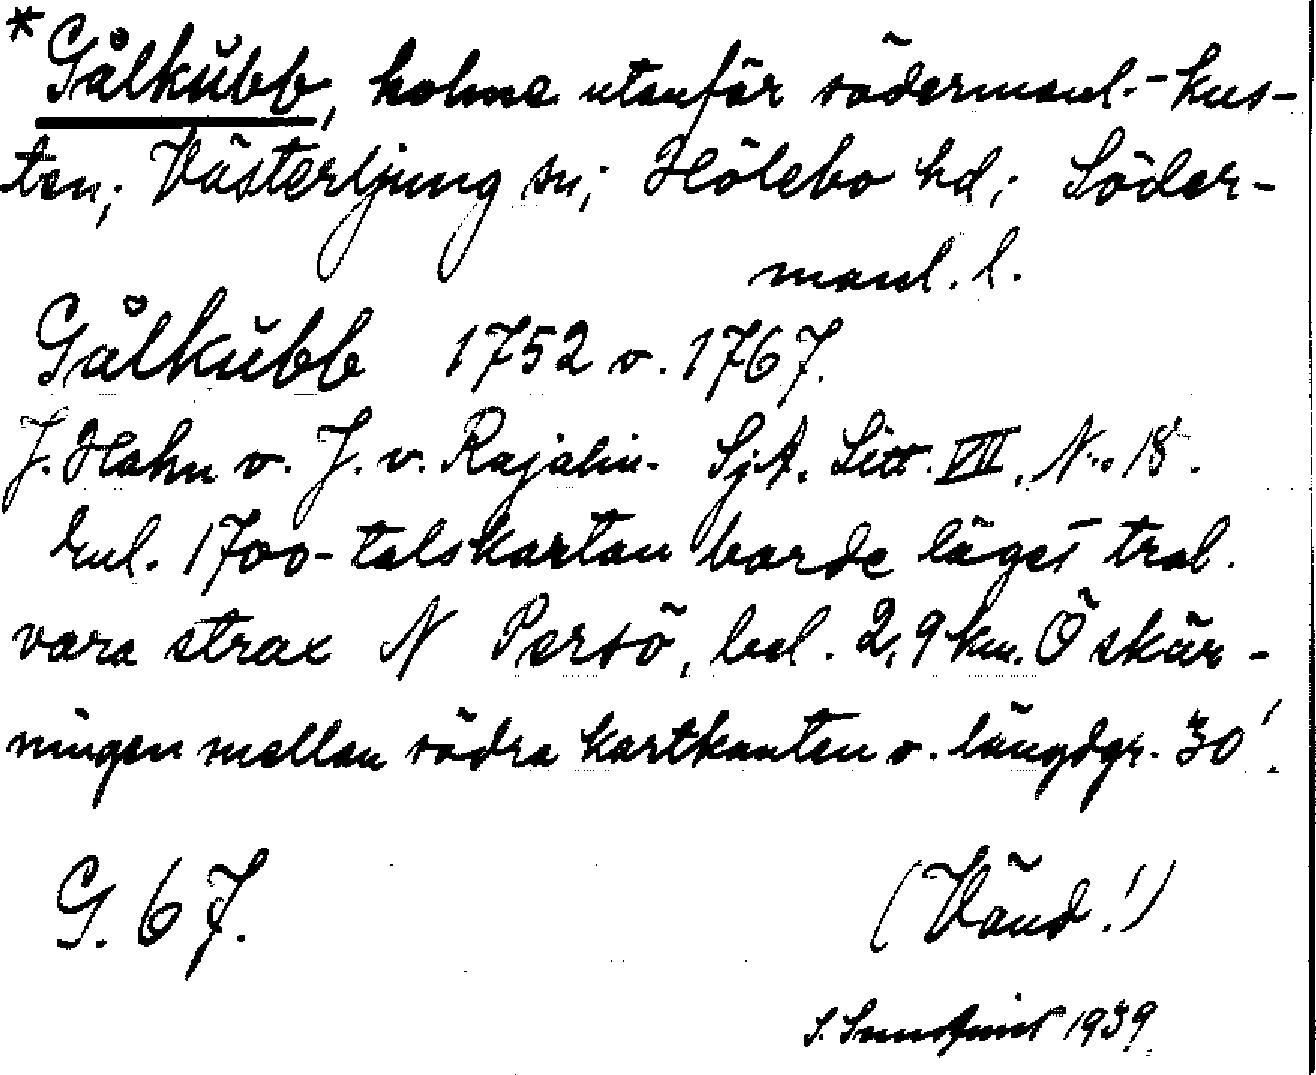 *Gålkubb, holme utanför södermanl.-kus-
ten; Västerljung sn; Hölebo hd; Söder-
manl. l.
Gålkubb 1752 o. 1767.
J. Hahn o. J. v. Rajalin. SjA. Litt. VII, N:o 18.
Enl. 1700-talskartan borde läget trol.
vara strax N Persö, bel. 2,9 km. Ö skär-
ningen mellan södra kartkanten o. längdgr. 30'.
G. 67.
(Vänd!)
S. Sundqvist 1939.